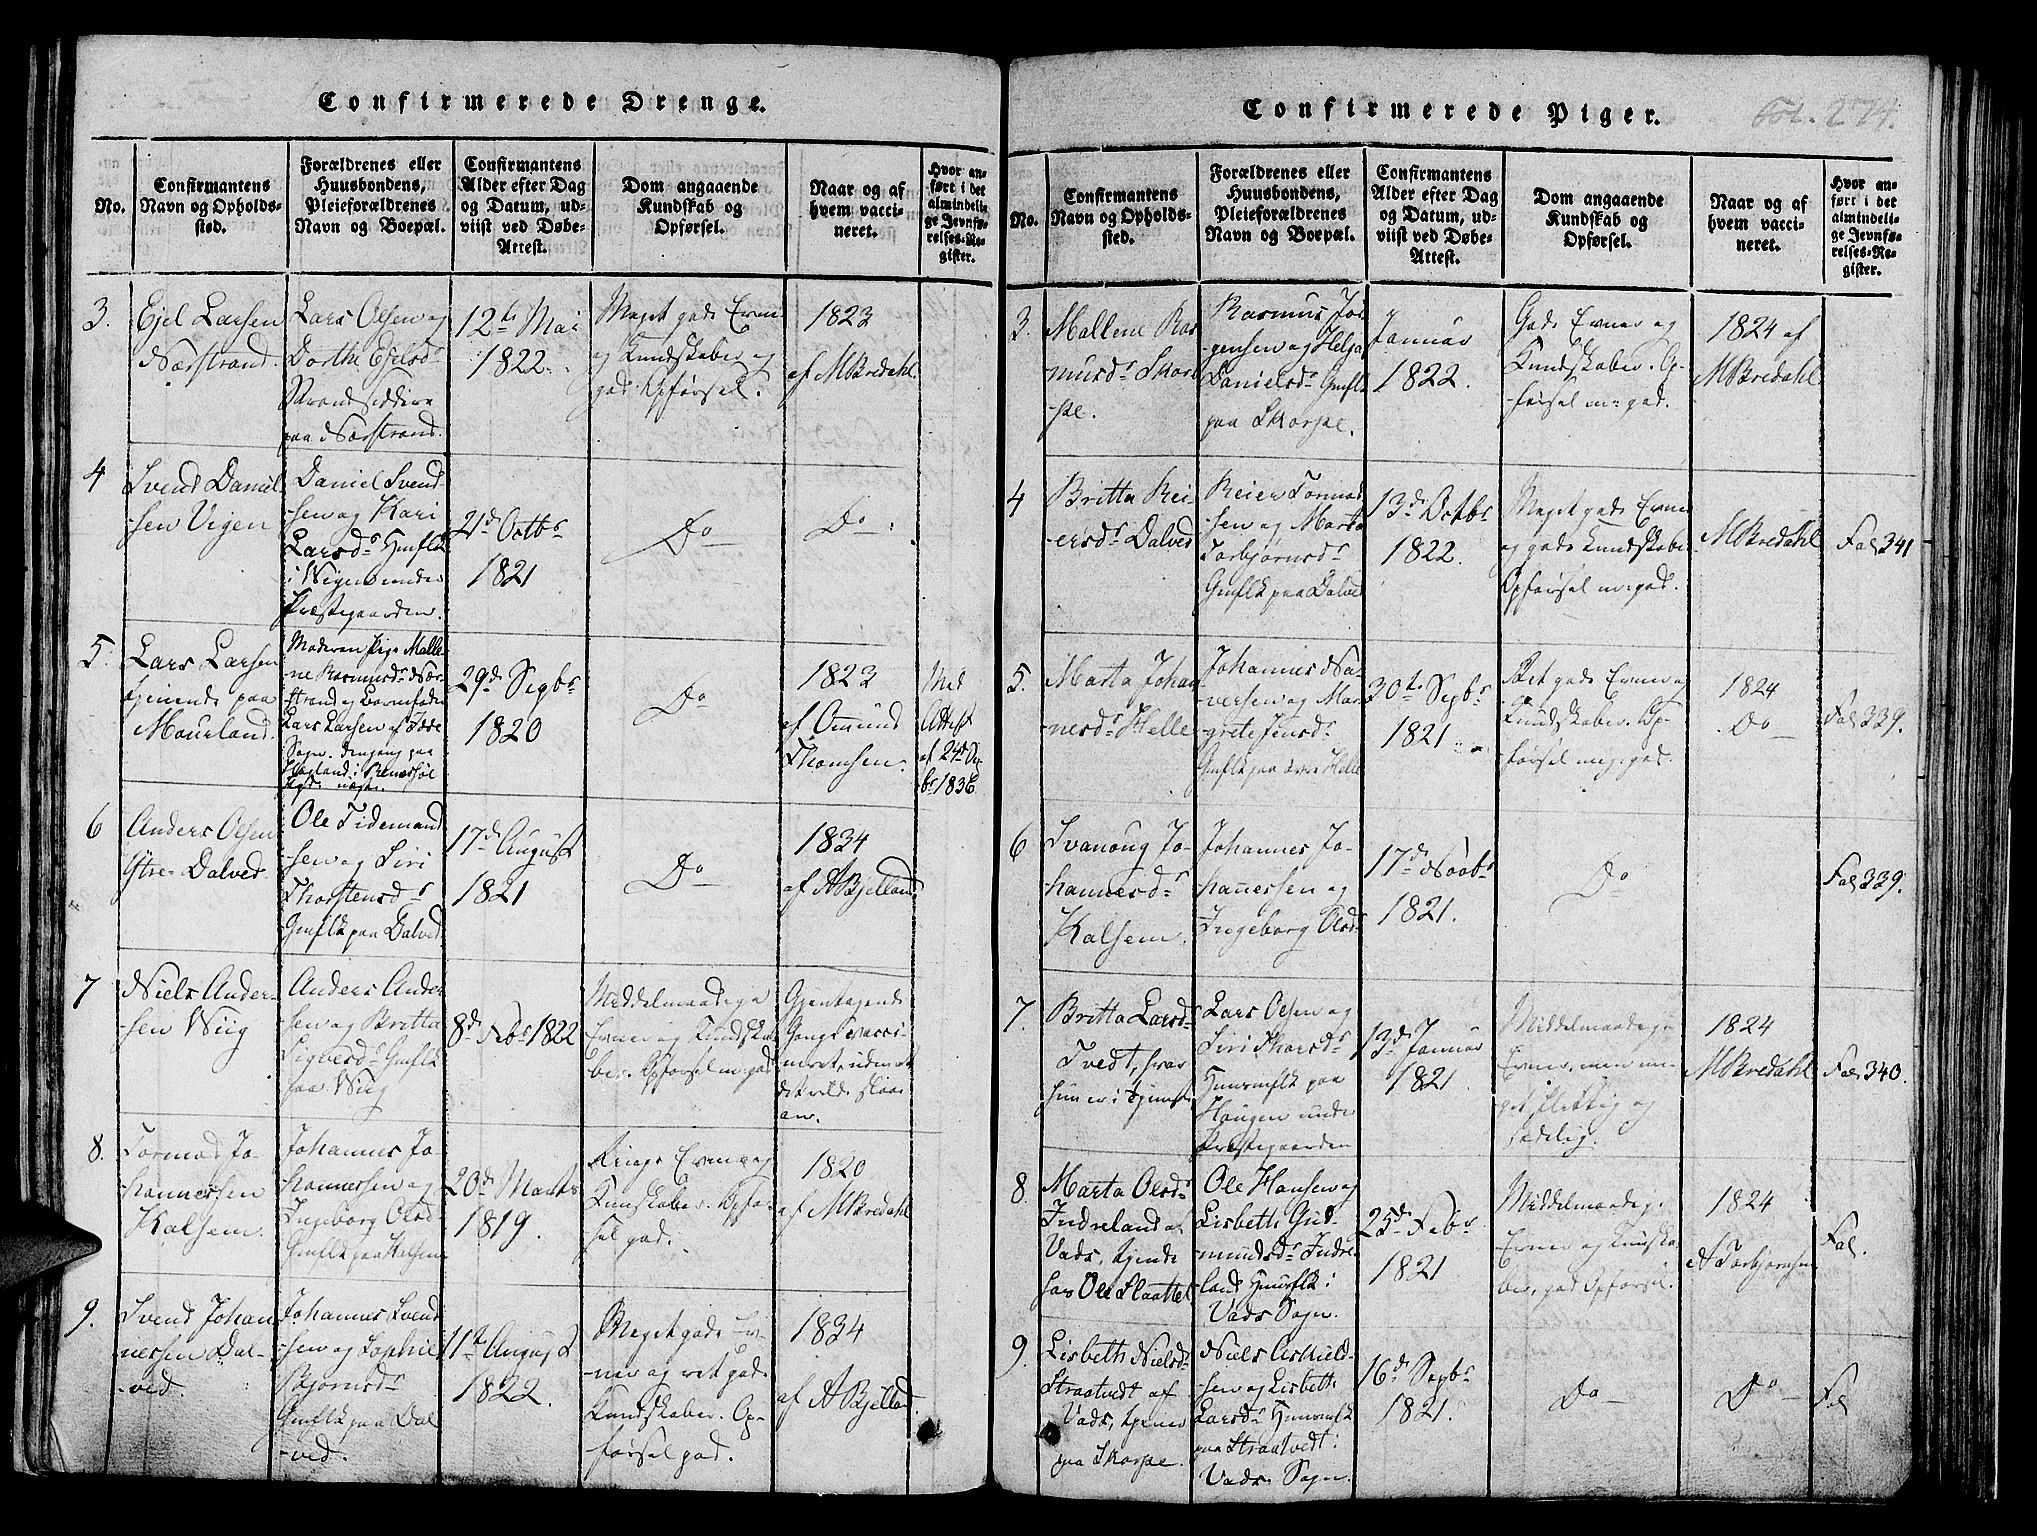 Confirmerede Drenge.
No.
Confirmantens
Navn og Opholds-
sted.
Forældrenes eller
Huusbondens,
Pleieforældrenes
Navn og Boepæl.
Confirmantens
Alder efter Dag
og Datum, ud-
viist ved Døbe-
Attest.
Dom angaaende
Kundskab og
Opførsel.
Naar og af
hvem vacci-
neret.
Hvor an-
ført i det
almindeli-
ge Jevnfø-
relses-Re-
gister.
3.
Ejel Larsen
Nærstrand.
Lars Olsen og
Dorthe Ejelsdr
Strandsiddere
paa Nærstrand.
12te Mai
1822.
Meget gode Evner
og Kundskaber og
god Opførsel.
1823
af MBredahl.
4
Svend Daniel
sen Vigen
Daniel Svend
sen og Kari
Larsdr Hmflk
i Wigen under
Præstegaarden.
21de Octbr
1821
Do
Do
5.
Lars Larsen
tjenende paa
Mourland.
Moderen Pige Malle-
ne Rasmusdr Nær-
strand og Barnefader
Lars Larsen af
Sogn.
29de Sepbr
1820
Do
1823
af Omund
Thomsen.
Med
Attest
af 24de
br 1836
6
Anders Olsen
Ytre Dalved.
Ole Tidemand
sen og Siri
Thorstensdr
Gmflk paa Dalved
17de August
1821
Do
1834
af ABjelland
7
Niels Ander-
sen Wiig
Anders Ander
sen og Britta
Sigversdr Gmflk
paa Wiig
8de Febr 1822
Middelmaadige
Evner og Kundska
ber. Opførsel m: god
Gjentagende
Gange vacci-
neret, uden at
det vilde slaae
an.
8.
Tormod Jo-
hannessen
Kalsem.
Johannes Jo-
hannessen og
Ingeborg Olsd
Gmflk paa Kalsem
20de Marts
1819.
Ringe Evner og
Kundskaber. Opfør
sel god.
1820
af MBredahl
9.
Svend Johan
nessen Dal-
ved.
Johannes Svend
sen og Sophie
Bjørnsdr
Gmflk paa Dal
ved.
11te August
1822.
Meget gode Ev-
ner og ret gode
Kundskaber. Op-
førsel god.
1834
af ABjelland.
Confirmerede Piger.
Fol. 274.
No.
Confirmantens
Navn og Opholds-
sted.
Forældrenes eller
Huusbondens,
Pleieforældrenes
Navn og Boepæl.
Confirmantens
Alder efter Dag
og Datum, ud-
viist ved Døbe-
Attest.
Dom angaaende
Kundskab og
Opførsel.
Naar og af
hvem vacci-
neret.
Hvor an-
ført i det
almindeli-
ge Jevnfø-
relses-Re-
gister.
3.
Mallene Ras
musdr Skor
pe.
Rasmus Jør
gensen og Helga
Danielsdr Gmflk
paa Skorpe.
Januar
1822.
Gode Evner og
Kundskaber. Op-
førsel m: god.
1824 af
MBredahl
4
Britta Rei
ersdr Dalved
Reier Tormod
sen og Marta
Torbjørnsdr
Gmflk paa Dalved
13de Octbr
1822.
Meget gode Evner
og gode Kundskaber
Opførsel m: god.
MBredahl
Fol 341
5.
Marta Johan
nesdr Helle
Johannes
versen og Mar
grete Jensdr
Gmflk paa øvre Helle
30te Sepbr
1821
Ret gode Evner og
Kundskaber. Op-
førsel meg: god.
1824
Do
Fol 339.
6
Svanoug Jo-
hannesdr
Kalsem.
Johannes Jo-
hannessen og
Ingeborg Olsd
17de Novbr
1821.
Do
Fol 339.
7.
Britta Larsdr
Tvedt, hvor
hun er i tjeneste
Lars Olsen og
Siri Thorsdr
Huusmflk paa
Haugen under
Præstegaarden
13de Januar
1821
Middelmaadige
Evner, men me-
get flittig og
sædelig.
1824
MBredahl
Fol 340.
8.
Marta Olsdr
Indreland af
Vads, tjenende
hos Ole Slaattel
Ole Hansen og
Lisbeth Gud
mundsdr Indre
land Huusflk i
Vads Sogn.
25de Febr
1821
Middelmaadige
Evner og Kundska
ber, god Opførsel.
1824
A Torbjørnsen
Fol.
9.
Lisbeth Nielsdr
Straatvedt af
Vads, tjener
paa Skorpe.
Niels Askild-
sen og Lisbeth
Larsdr Huusmflk
paa Straatvedt i
Vads Sogn.
16de Sepbr
1821.
Do
Do
Fol